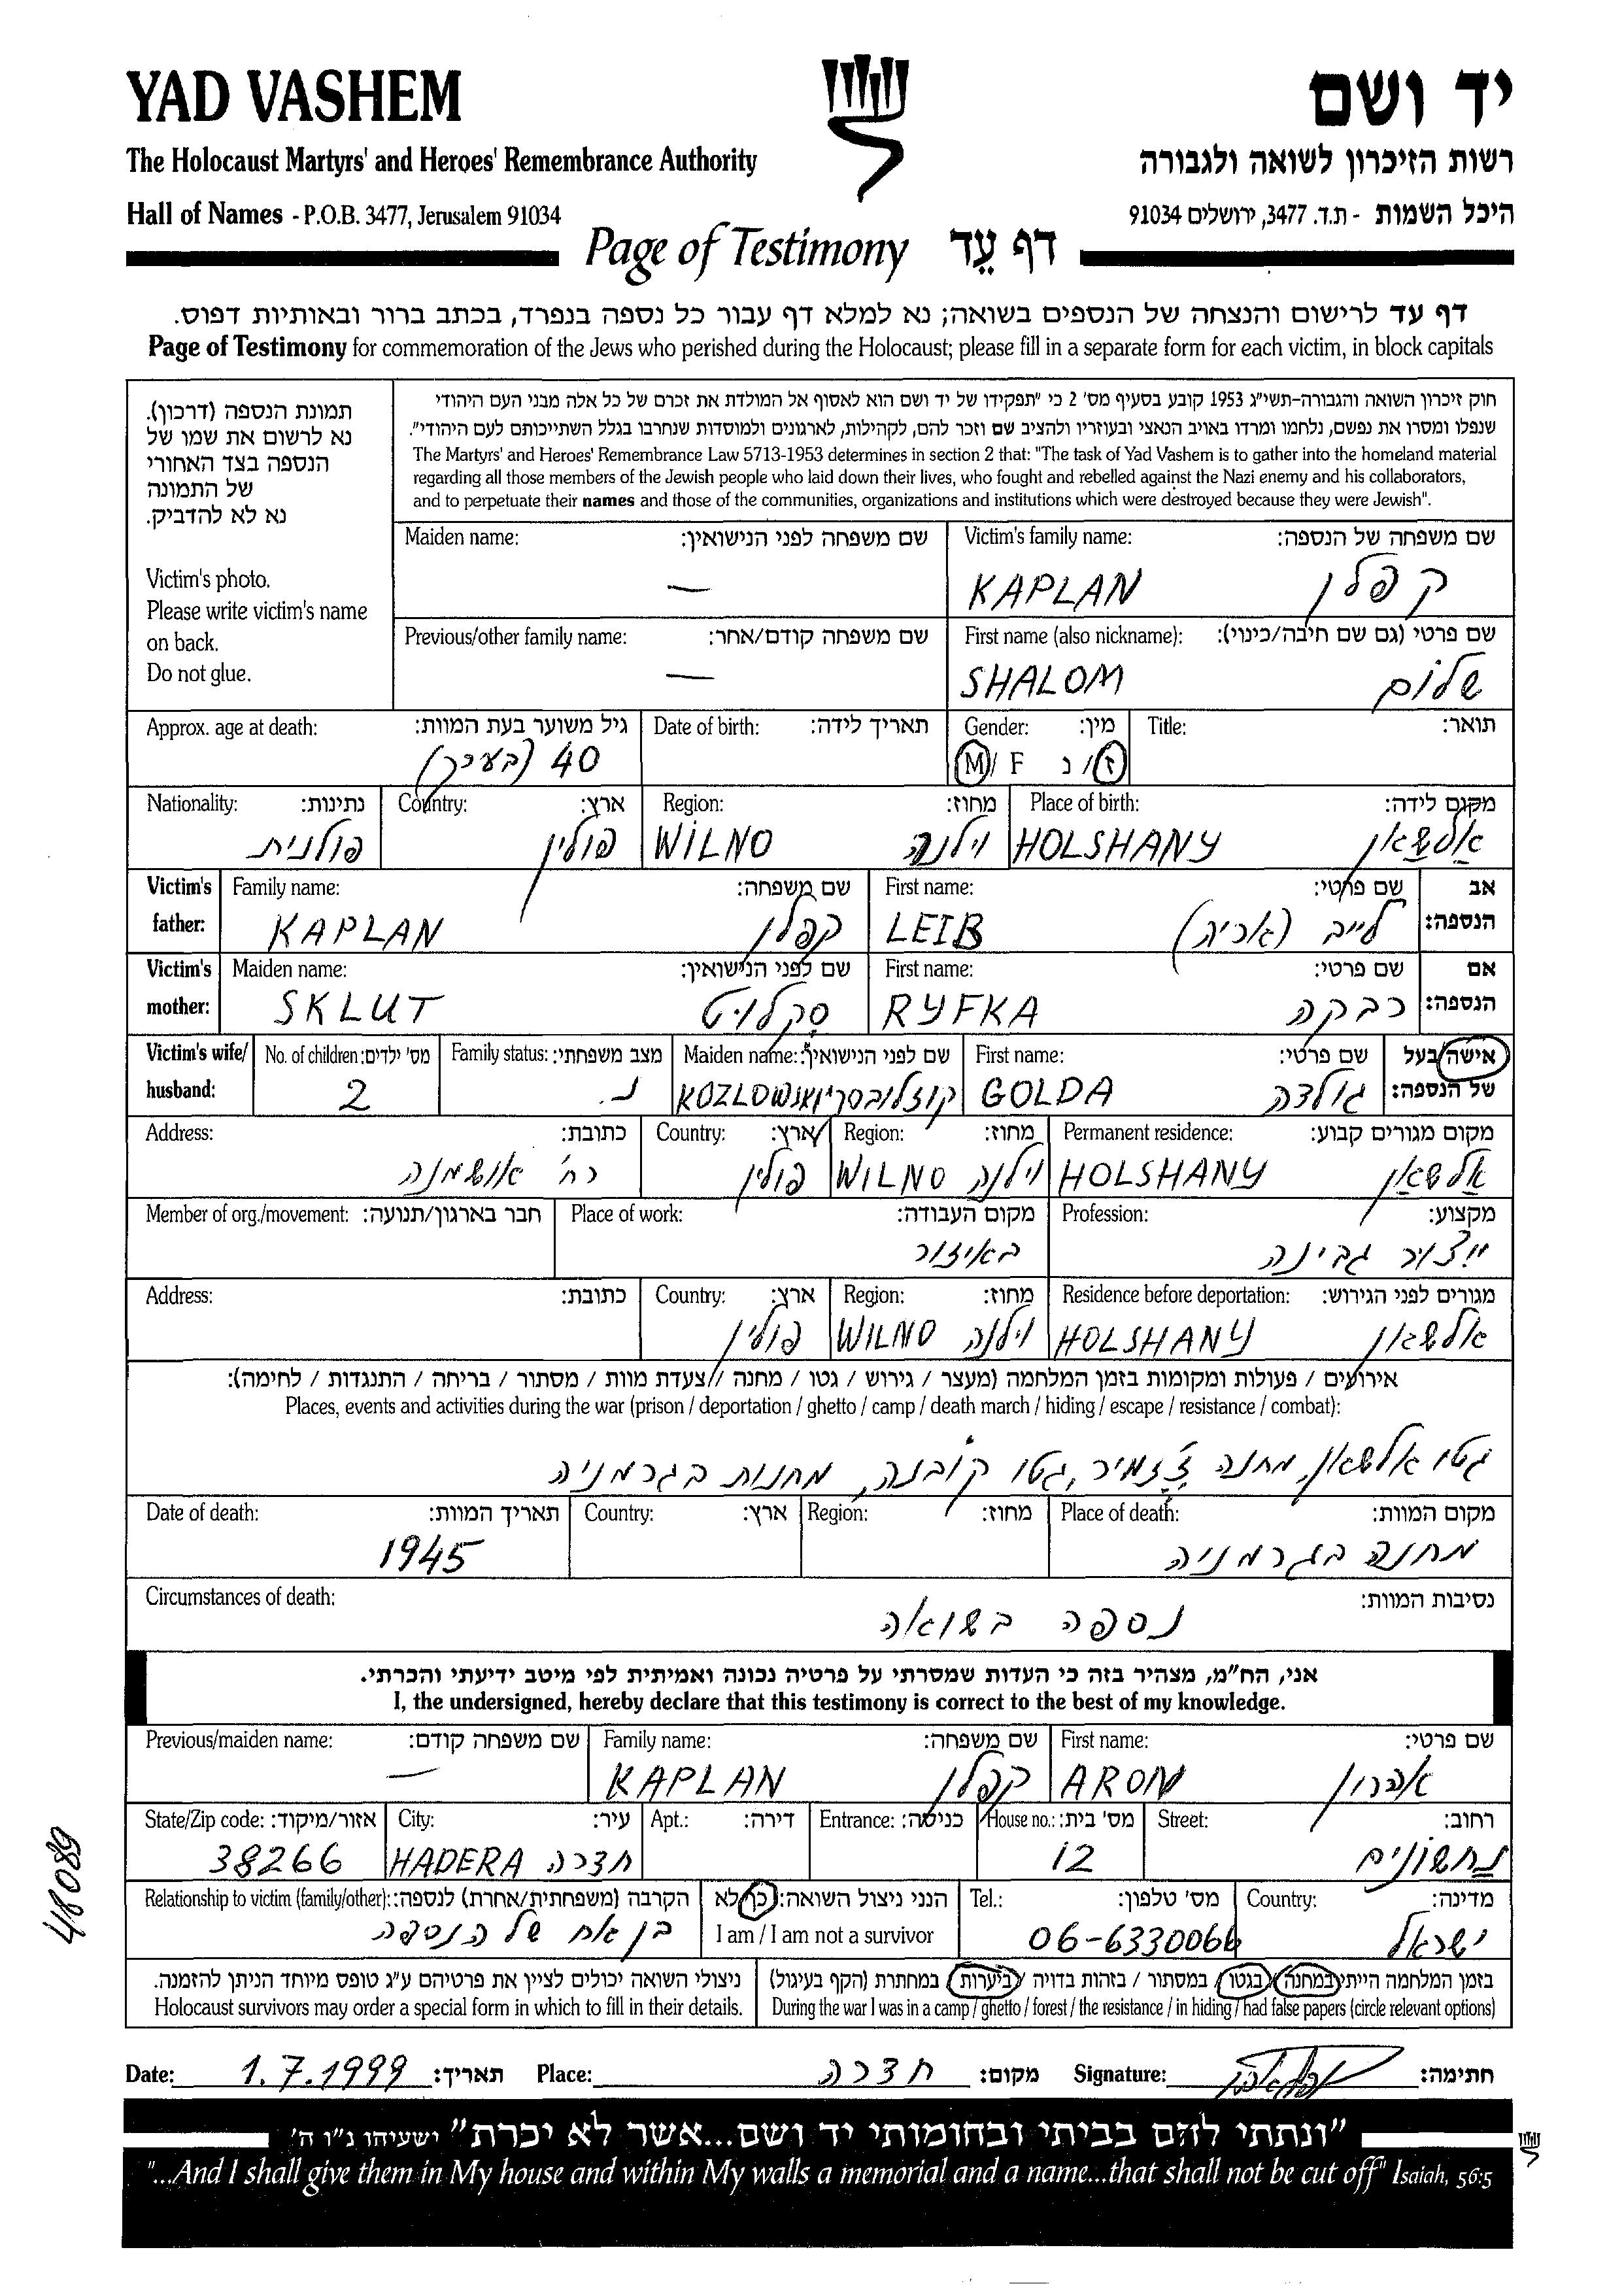 YAD VASHEM
יד ושם
The Holocaust Martyrs' and Heroes' Remembrance Authority
רשות הזיכרון לשואה ולגבורה
Hall of Names - P.O.B. 3477, Jerusalem 91034
היכל השמות - ת.ד. 3477, ירושלים 91034
Page of Testimony דף עֵד
דף עד לרישום והנצחה של הנספים בשואה; נא למלא דף עבור כל נספה בנפרד, בכתב ברור ובאותיות דפוס.
Page of Testimony for commemoration of the Jews who perished during the Holocaust; please fill in a separate form for each victim, in block capitals
תמונת הנספה (דרכון).
נא לרשום את שמו של
הנספה בצד האחורי
של התמונה
נא לא להדביק.
Victim's photo.
Please write victim's name
on back.
Do not glue.
חוק זיכרון השואה והגבורה-תשי"ג 1953 קובע בסעיף מס' 2 כי "תפקידו של יד ושם הוא לאסוף אל המולדת את זכרם של כל אלה מבני העם היהודי
שנפלו ומסרו את נפשם, נלחמו ומרדו באויב הנאצי ובעוזריו ולהציב שם וזכר להם, לקהילות, לארגונים ולמוסדות שנחרבו בגלל השתייכותם לעם היהודי".
The Martyrs' and Heroes' Remembrance Law 5713-1953 determines in section 2 that: "The task of Yad Vashem is to gather into the homeland material
regarding all those members of the Jewish people who laid down their lives, who fought and rebelled against the Nazi enemy and his collaborators,
and to perpetuate their names and those of the communities, organizations and institutions which were destroyed because they were Jewish".
Maiden name: שם משפחה לפני הנישואין:
—
Victim's family name: שם משפחה של הנספה:
KAPLAN קפלן
Previous/other family name: שם משפחה קודם/אחר:
—
First name (also nickname): שם פרטי (גם שם חיבה/כינוי):
SHALOM שלום
Approx. age at death: גיל משוער בעת המוות:
40 (בערך)
Date of birth: תאריך לידה:
Gender: מין:
M/ F ז/ נ
Title: תואר:
Nationality: נתינות:
פולנית
Country: ארץ:
פולין
Region: מחוז:
WILNO וילנה
Place of birth: מקום לידה:
HOLSHANY אַלשַאן
Victim's father: אב הנספה:
Family name: שם משפחה:
KAPLAN קפלן
First name: שם פרטי:
LEIB לייב (אריה)
Victim's mother: אם הנספה:
Maiden name: שם לפני הנישואין:
SKLUT סקלוט
First name: שם פרטי:
RYFKA רבקה
Victim's wife/ husband: אישה/בעל של הנספה:
No. of children: מס' ילדים:
2
Family status: מצב משפחתי:
נ.
Maiden name: שם לפני הנישואין:
KOZLOWSKI קוזלובסקי
First name: שם פרטי:
GOLDA גולדה
Address: כתובת:
רח' אושמנה
Country: ארץ:
פולין
Region: מחוז:
WILNO וילנה
Permanent residence: מקום מגורים קבוע:
HOLSHANY אַלשַאן
Member of org./movement: חבר בארגון/תנועה:
Place of work: מקום העבודה:
באיזור
Profession: מקצוע:
ייצור גבינה
Address: כתובת:
Country: ארץ:
פולין
Region: מחוז:
WILNO וילנה
Residence before deportation: מגורים לפני הגירוש:
HOLSHANY אלשאן
אירועים / פעולות ומקומות בזמן המלחמה (מעצר / גירוש / גטו / מחנה / צעדת מוות / מסתור / בריחה / התנגדות / לחימה):
Places, events and activities during the war (prison / deportation / ghetto / camp / death march / hiding / escape / resistance / combat):
גטו אלשאן, מחנה ז'זמיר, גטו קובנה, מחנות בגרמניה
Date of death: תאריך המוות:
1945
Country: ארץ:
Region: מחוז:
Place of death: מקום המוות:
מחנה בגרמניה
Circumstances of death: נסיבות המוות:
נספה בשואה
אני, הח"מ, מצהיר בזה כי העדות שמסרתי על פרטיה נכונה ואמיתית לפי מיטב ידיעתי והכרתי.
I, the undersigned, hereby declare that this testimony is correct to the best of my knowledge.
Previous/maiden name: שם משפחה קודם:
—
Family name: שם משפחה:
KAPLAN קפלן
First name: שם פרטי:
ARON אהרון
State/Zip code: אזור/מיקוד:
38266
City: עיר:
HADERA חדרה
Apt.: דירה:
Entrance: כניסה:
House no.: מס' בית:
12
Street: רחוב:
נחשונים
Relationship to victim (family/other): הקרבה (משפחתית/אחרת) לנספה:
בן אח של הנספה
הנני ניצול השואה: כן/לא
I am / I am not a survivor
Tel.: מס' טלפון:
06-6330066
Country: מדינה:
ישראל
ניצולי השואה יכולים לציין את פרטיהם ע"ג טופס מיוחד הניתן להזמנה.
Holocaust survivors may order a special form in which to fill in their details.
בזמן המלחמה הייתי במחנה / בגטו / במסתור / בזהות בדויה / ביערות / במחתרת (הקף בעיגול)
During the war I was in a camp / ghetto / forest / the resistance / in hiding / had false papers (circle relevant options)
Date: 1.7.1999 תאריך: Place: חדרה מקום: Signature: חתימה:
"ונתתי להם בביתי ובחומותי יד ושם...אשר לא יכרת" ישעיהו נ"ו ה'
"...And I shall give them in My house and within My walls a memorial and a name...that shall not be cut off" Isaiah, 56:5
418089